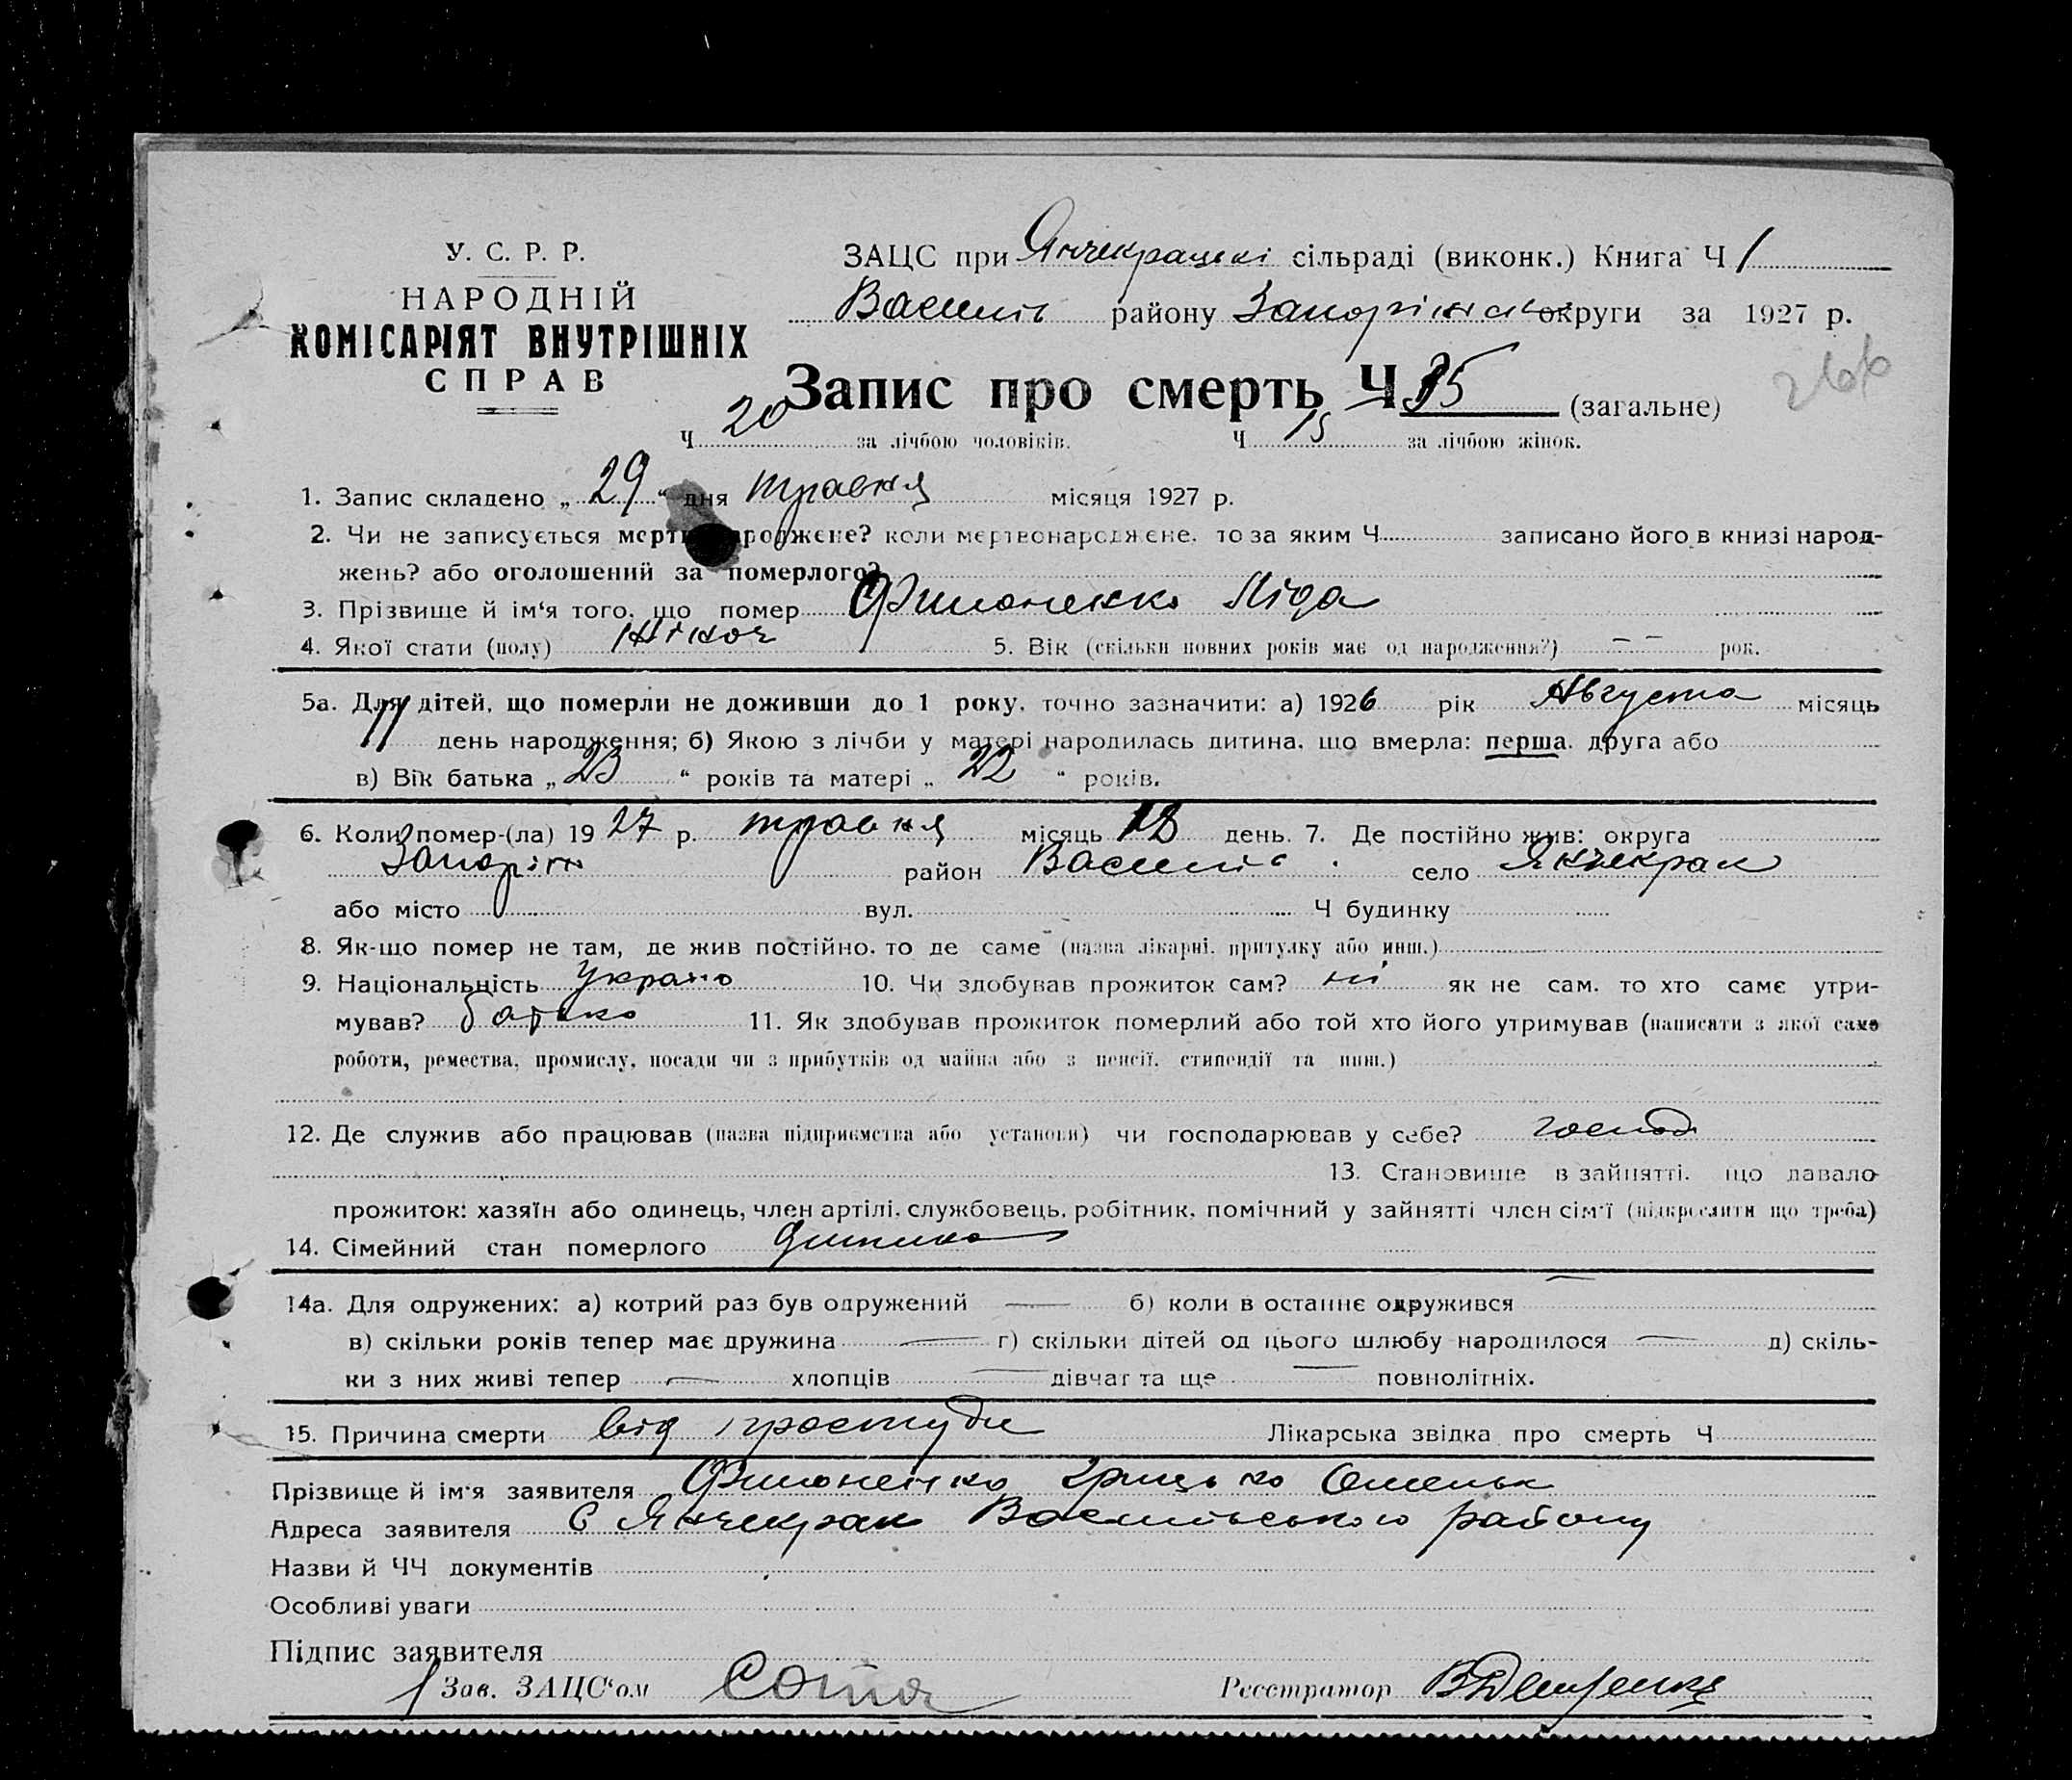 У. С. Р. Р.
НАРОДНІЙ
КОМІСАРІЯТ ВНУТРІШНІХ
СПРАВ
ЗАЦС при Янчекрацькі сільраді (виконк.) Книга Ч 1
Василів району Запоріжської округи за 1927 р.
266
Запис про смерть Ч 35 (загальне)
Ч 20 за лічбою чоловіків. Ч 15 за лічбою жінок.
1. Запис складено „ 29 “ дня травня місяця 1927 р.
2. Чи не записується мертвонароджене? коли мертвонароджене, то за яким Ч записано його в книзі народ-
жень? або оголошений за померлого?
3. Прізвище й ім‘я того, що помер Филоненко Ліда
4. Якої стати (полу) жіноч 5. Вік (скільки повних років має од народження?) — — рок.
5а. Для дітей, що померли не доживши до 1 року, точно зазначити: а) 1926 рік Августа місяць
11 день народження; б) Якою з лічби у матері народилась дитина, що вмерла: перша, друга або
в) Вік батька „ 23 “ років та матері „ 22 “ років.
6. Коли помер-(ла) 1927 р. травня місяць 18 день. 7. Де постійно жив: округа
Запоріж район Василів село Янчекрак
або місто вул. Ч будинку
8. Як-що помер не там, де жив постійно, то де саме (назва лікарні, притулку або инш.)
9. Національність Украінс 10. Чи здобував прожиток сам? ні як не сам, то хто саме утри-
мував? батько 11. Як здобував прожиток померлий або той хто його утримував (написати з якої саме
роботи, ремества, промислу, посади чи з прибутків од майна або з пенсії, стипендії та инш.)
12. Де служив або працював (назва підприємства або установи) чи господарював у себе? господ
13. Становище в зайнятті, що давало
прожиток: хазяїн або одинець, член артілі, службовець, робітник, помічний у зайнятті член сім‘ї (підкреслити що треба)
14. Сімейний стан померлого дитина
14а. Для одружених: а) котрий раз був одружений — б) коли в останнє одружився —
в) скільки років тепер має дружина — г) скільки дітей од цього шлюбу народилося — д) скіль-
ки з них живі тепер — хлопців — дівчат та ще — повнолітніх.
15. Причина смерти від простуди Лікарська звідка про смерть Ч
Прізвище й ім‘я заявителя Филоненко Грицько Омельк
Адреса заявителя С Янчекрак Васильівського району
Назви й ЧЧ документів
Особливі уваги
Підпис заявителя
Зав. ЗАЦС‘ом
Реєстратор